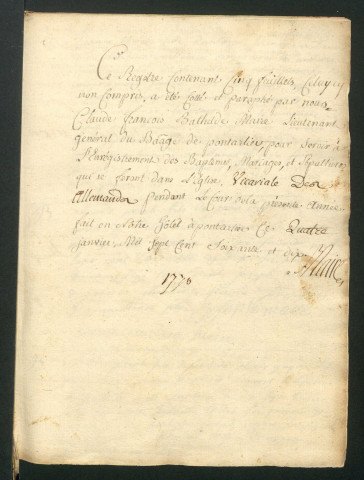 Ce Registre Contenant Cinq feuillets, Celuy cy
non Compris, a été Cotté et paraphé par nous
Claude francois Bathilde Marie Lieutenant
général du Bãage de pontarlier, pour servir à
l'Enrégistrement des Baptêmes, Mariages, et Sépultures
qui se feront dans l'Eglise, Vicariale Des
Allemands pendant le Cours de la présente Année
fait en Notre hôtel à pontarlier Ce Quatre
janvier, Mil Sept Cent Soixante et dix
Marie
1770